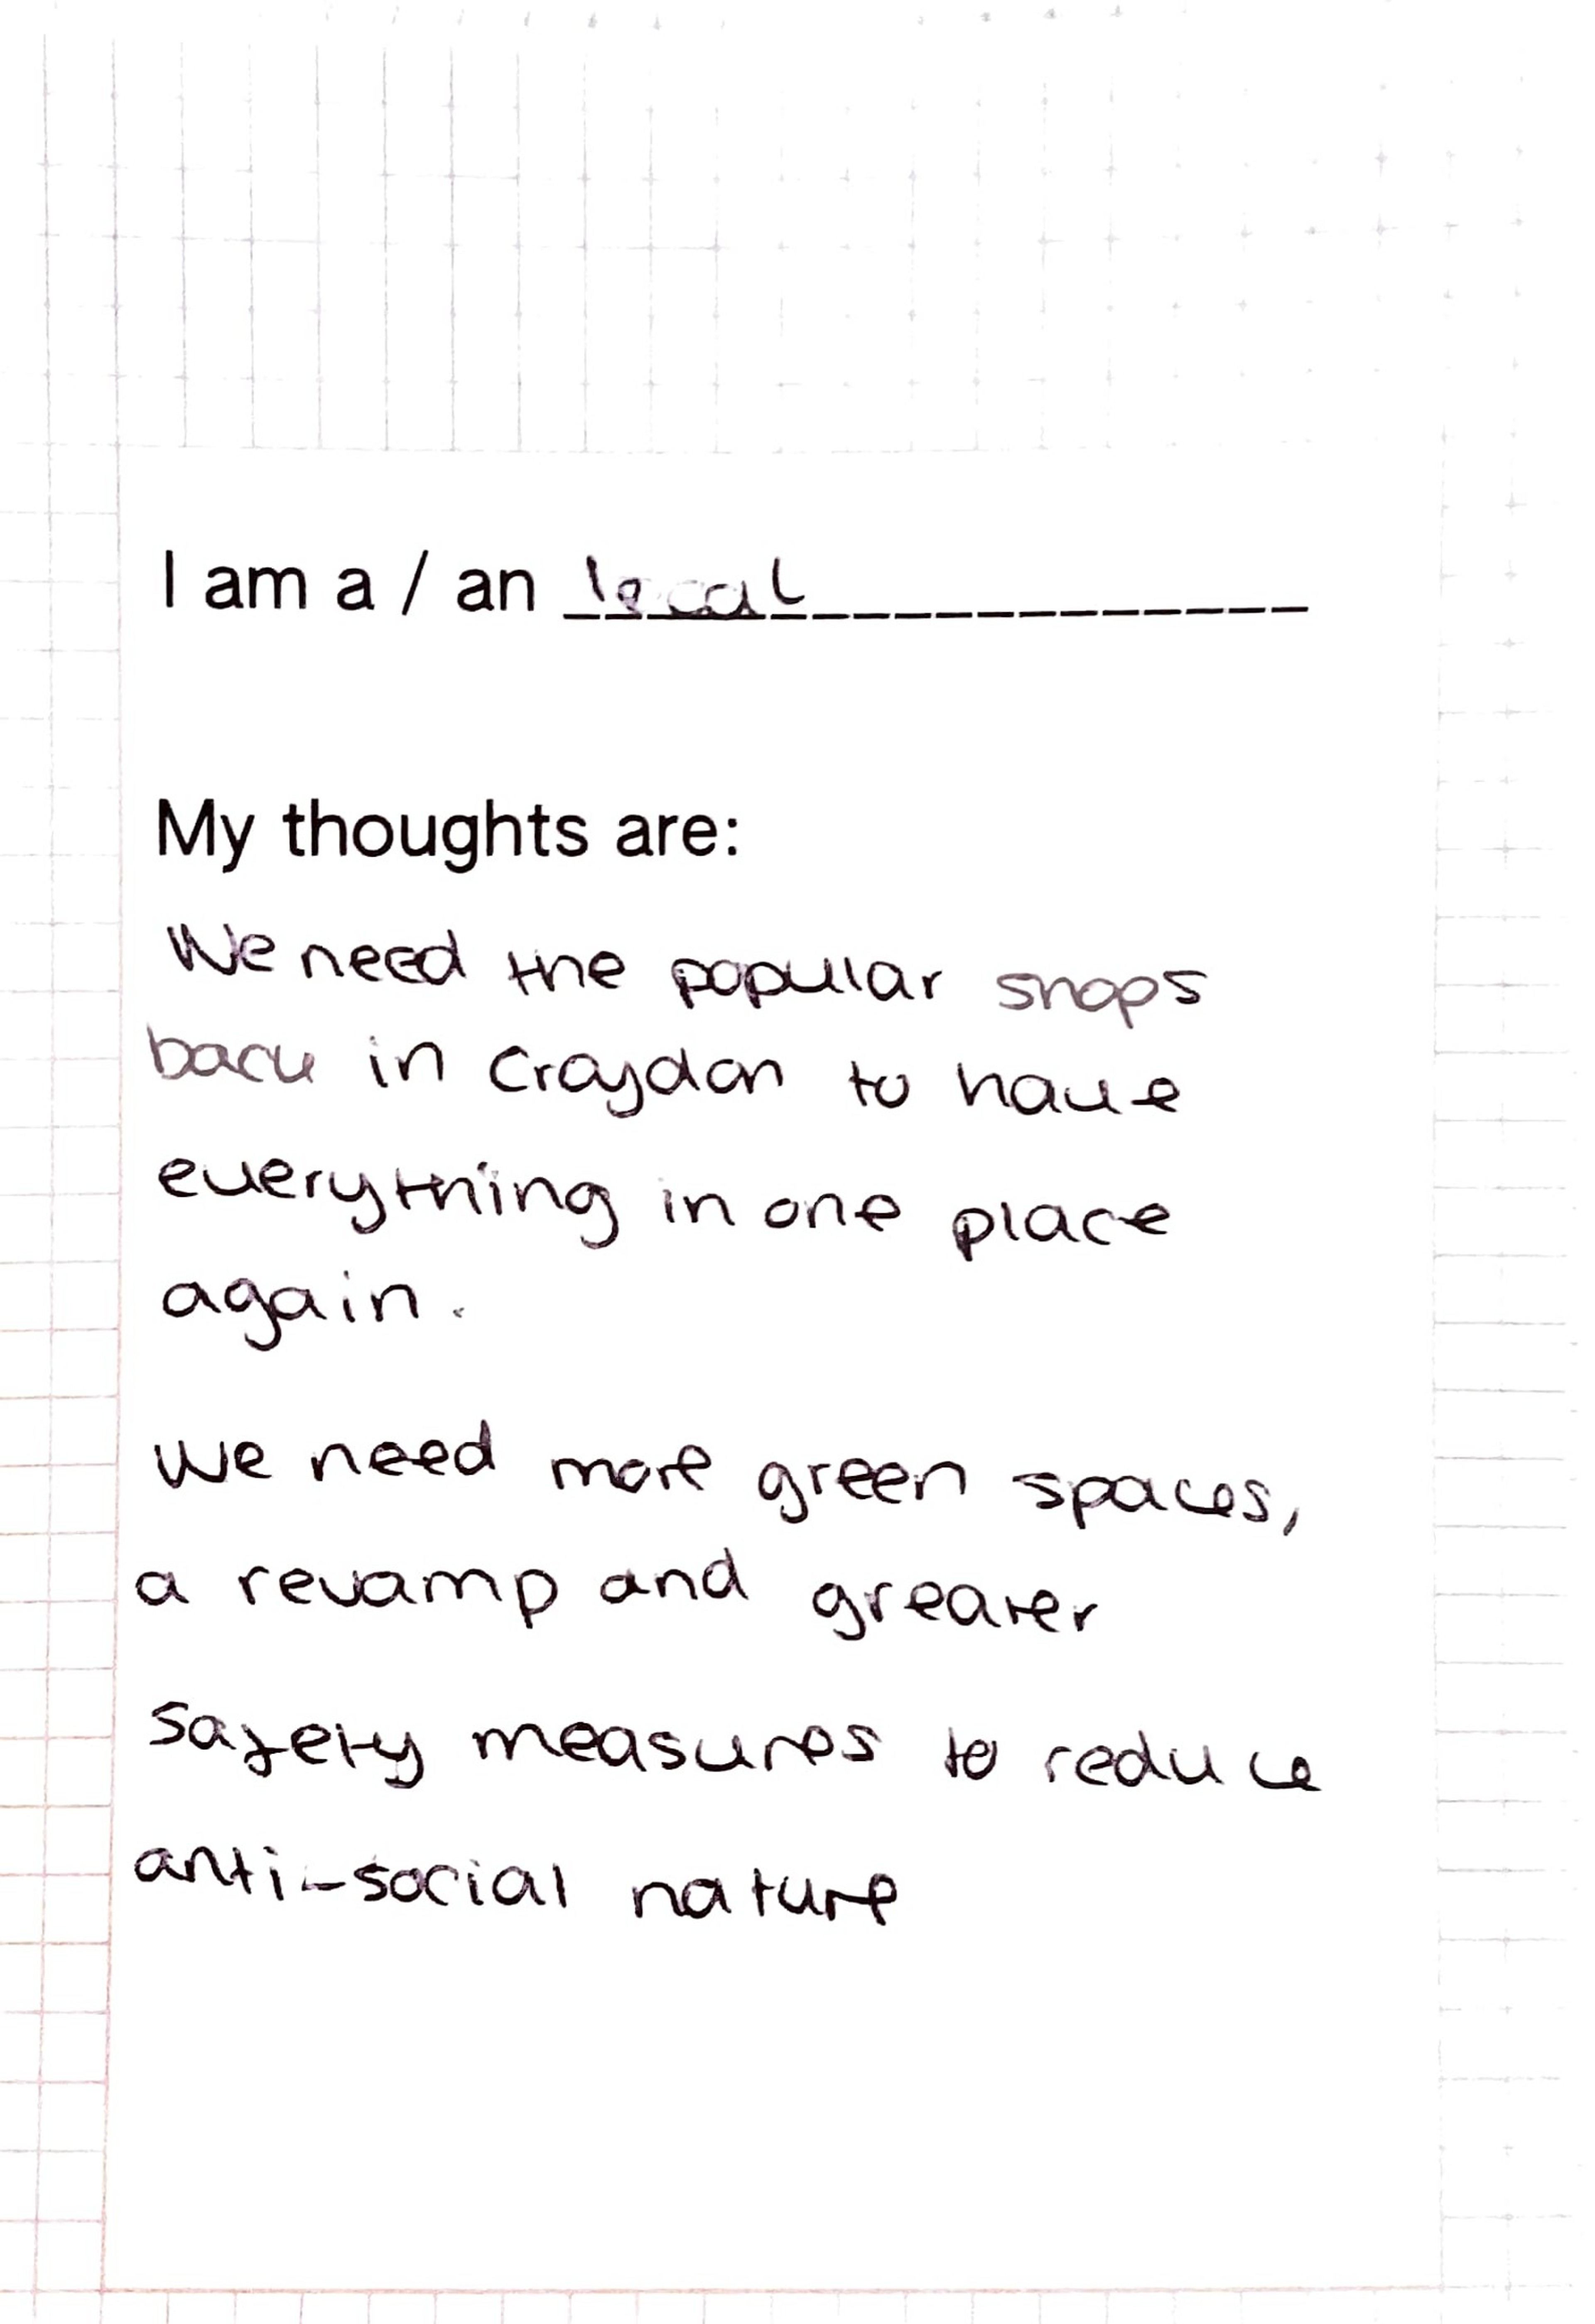 I am a / an local
My thoughts are:
We need the popular shops
back in Croydon to have
everything in one place
again.
We need more green spaces,
a revamp and greater
safety measures to reduce
anti-social nature